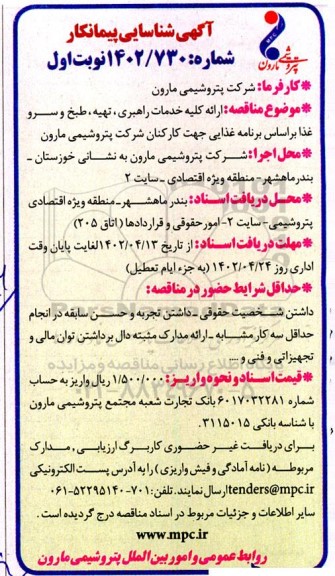 پتروشیمی مارون
آگهی شناسایی پیمانکار
شماره: ۱۴۰۲/۷۳۰ نوبت اول
* کارفرما: شرکت پتروشیمی مارون
* موضوع مناقصه: ارائه کلیه خدمات راهبری، تهیه، طبخ و سرو
غذا براساس برنامه غذایی جهت کارکنان شرکت پتروشیمی مارون
* محل اجرا: شرکت پتروشیمی مارون به نشانی خوزستان -
بندرماهشهر - منطقه ویژه اقتصادی - سایت ۲
* محل دریافت اسناد: بندر ماهشهر - منطقه ویژه اقتصادی
پتروشیمی - سایت ۲ - امور حقوقی و قراردادها (اتاق ۲۰۵)
* مهلت دریافت اسناد: از تاریخ ۱۴۰۲/۰۴/۱۳ لغایت پایان وقت
اداری روز ۱۴۰۲/۰۴/۲۴ (به جزء ایام تعطیل)
* حداقل شرایط حضور در مناقصه:
داشتن شخصیت حقوقی - داشتن تجربه و حسن سابقه در انجام
حداقل سه کار مشابه - ارائه مدارک مثبته دال برداشتن توان مالی و
تجهیزاتی و فنی و ....
* قیمت اسناد و نحوه واریز: ۱/۵۰۰/۰۰۰ ریال واریز به حساب
شماره ۶۰۱۷۰۳۲۲۸۱ بانک تجارت شعبه مجتمع پتروشیمی مارون
با شناسه بانکی ۳۱۱۵۰۱۵.
برای دریافت غیر حضوری کاربرگ ارزیابی، مدارک
مربوطه (نامه آمادگی و فیش واریزی) را به آدرس پست الکترونیکی
tenders@mpc.ir ارسال نمایند. تلفن: ۷۰۱-۵۲۲۹۵۱۴۰-۰۶۱
سایر اطلاعات و جزئیات مربوط در اسناد مناقصه درج گردیده است.
www.mpc.ir
روابط عمومی و امور بین الملل پتروشیمی مارون